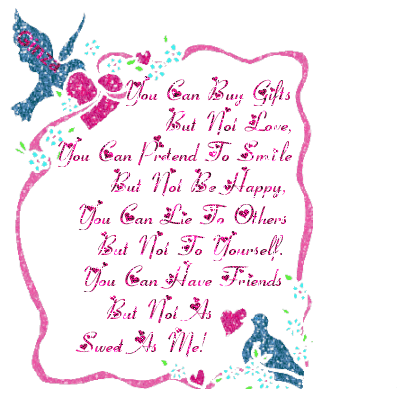 You Can Buy Gifts
But Not Love,
You Can Pretend To Smile
But Not Be Happy,
You Can Lie To Others
But Not To Yourself.
You Can Have Friends
But Not As
Sweet As Me!